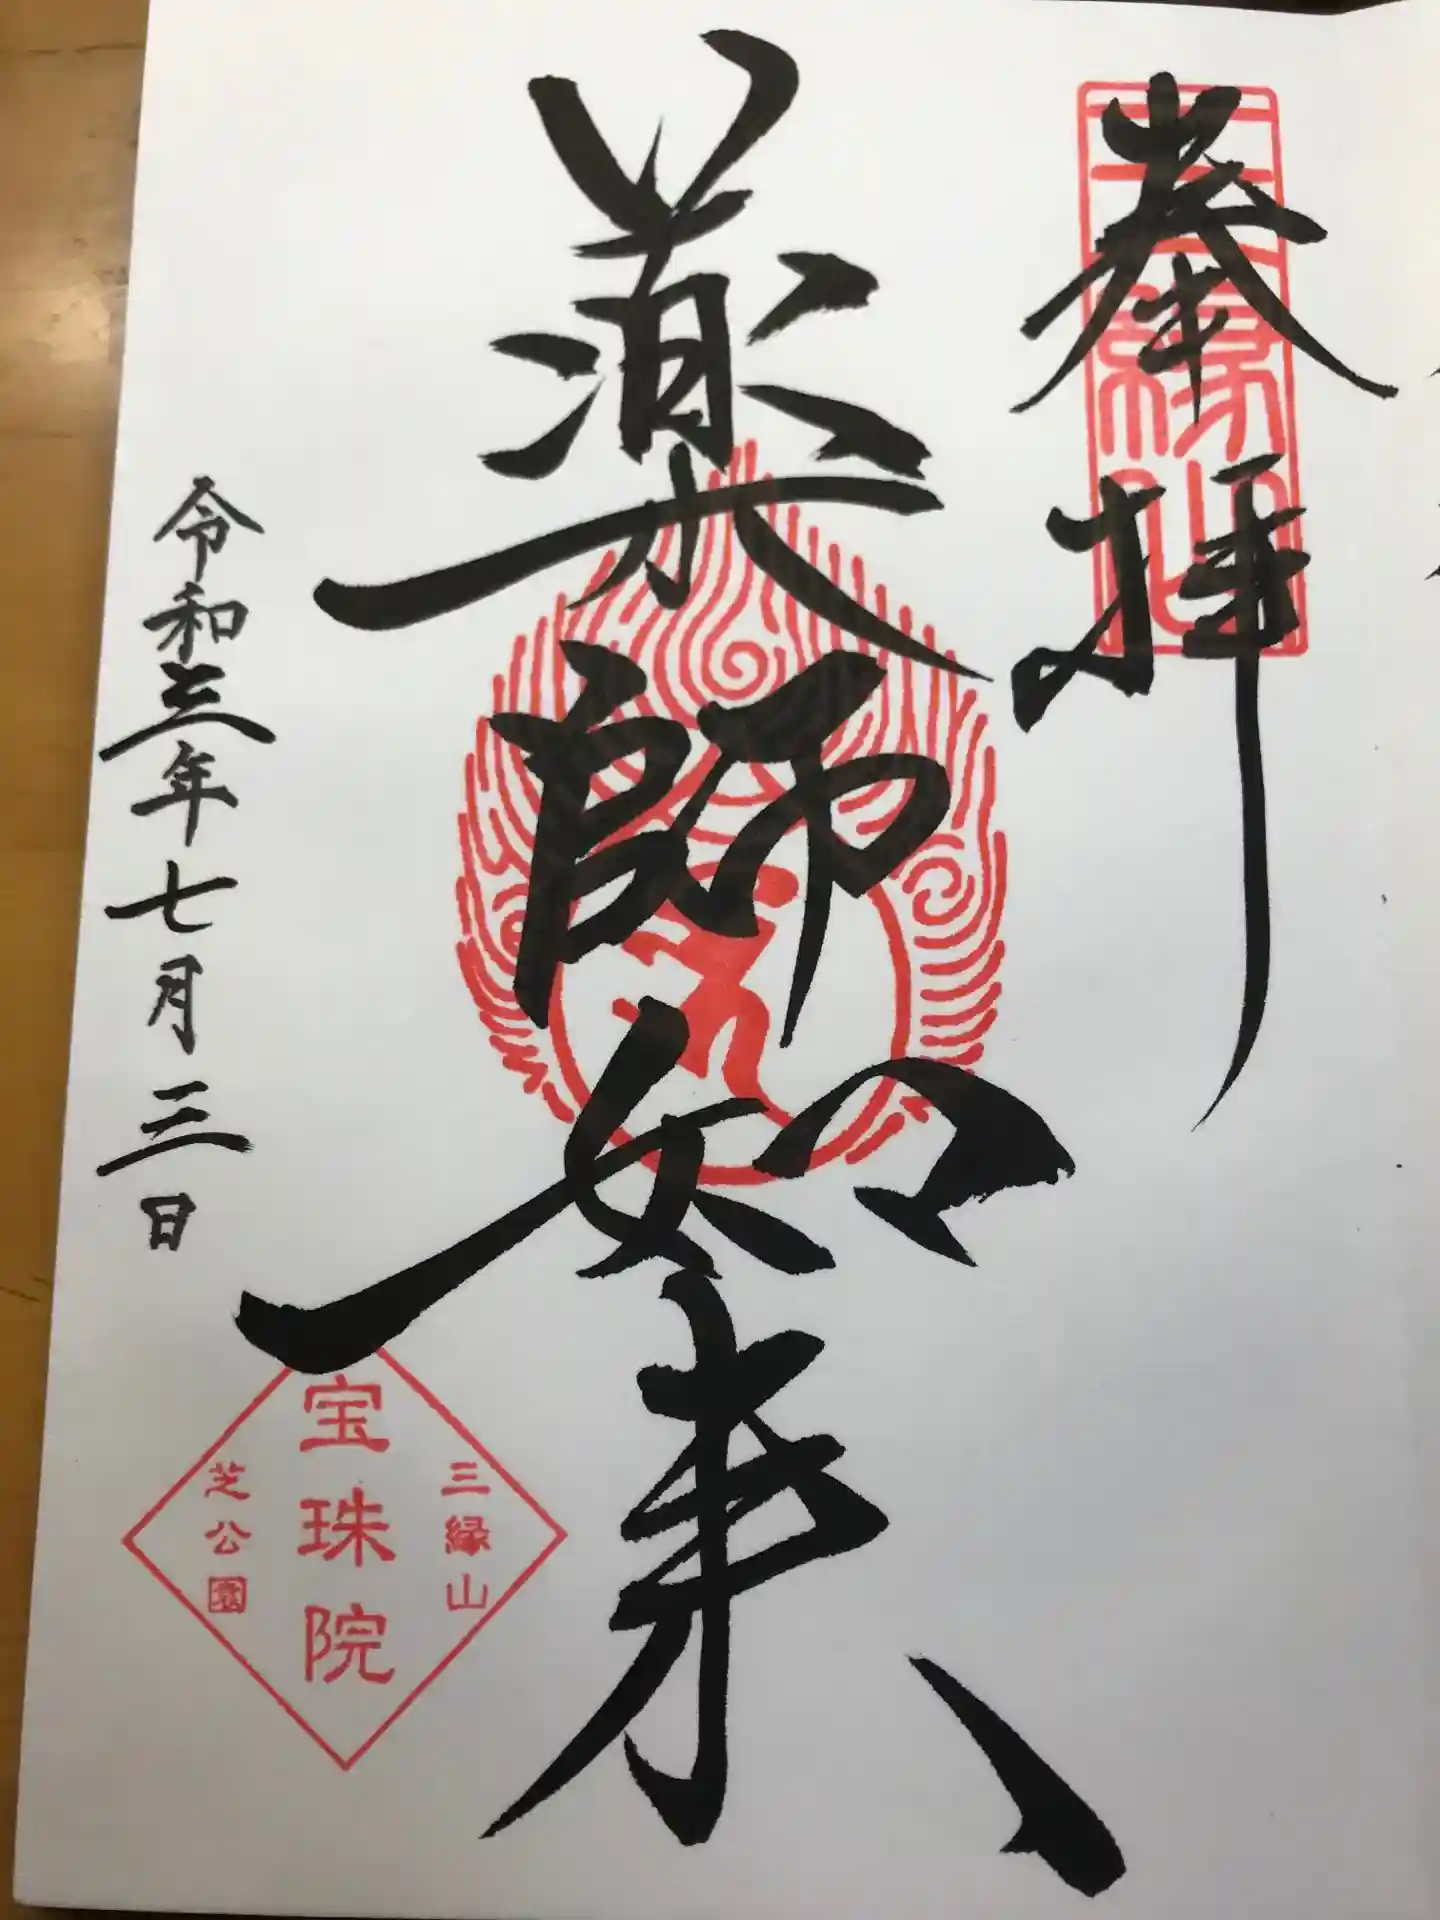 奉拝
三縁山
薬師如来
令和三年七月三日
三縁山
宝珠院
芝公園